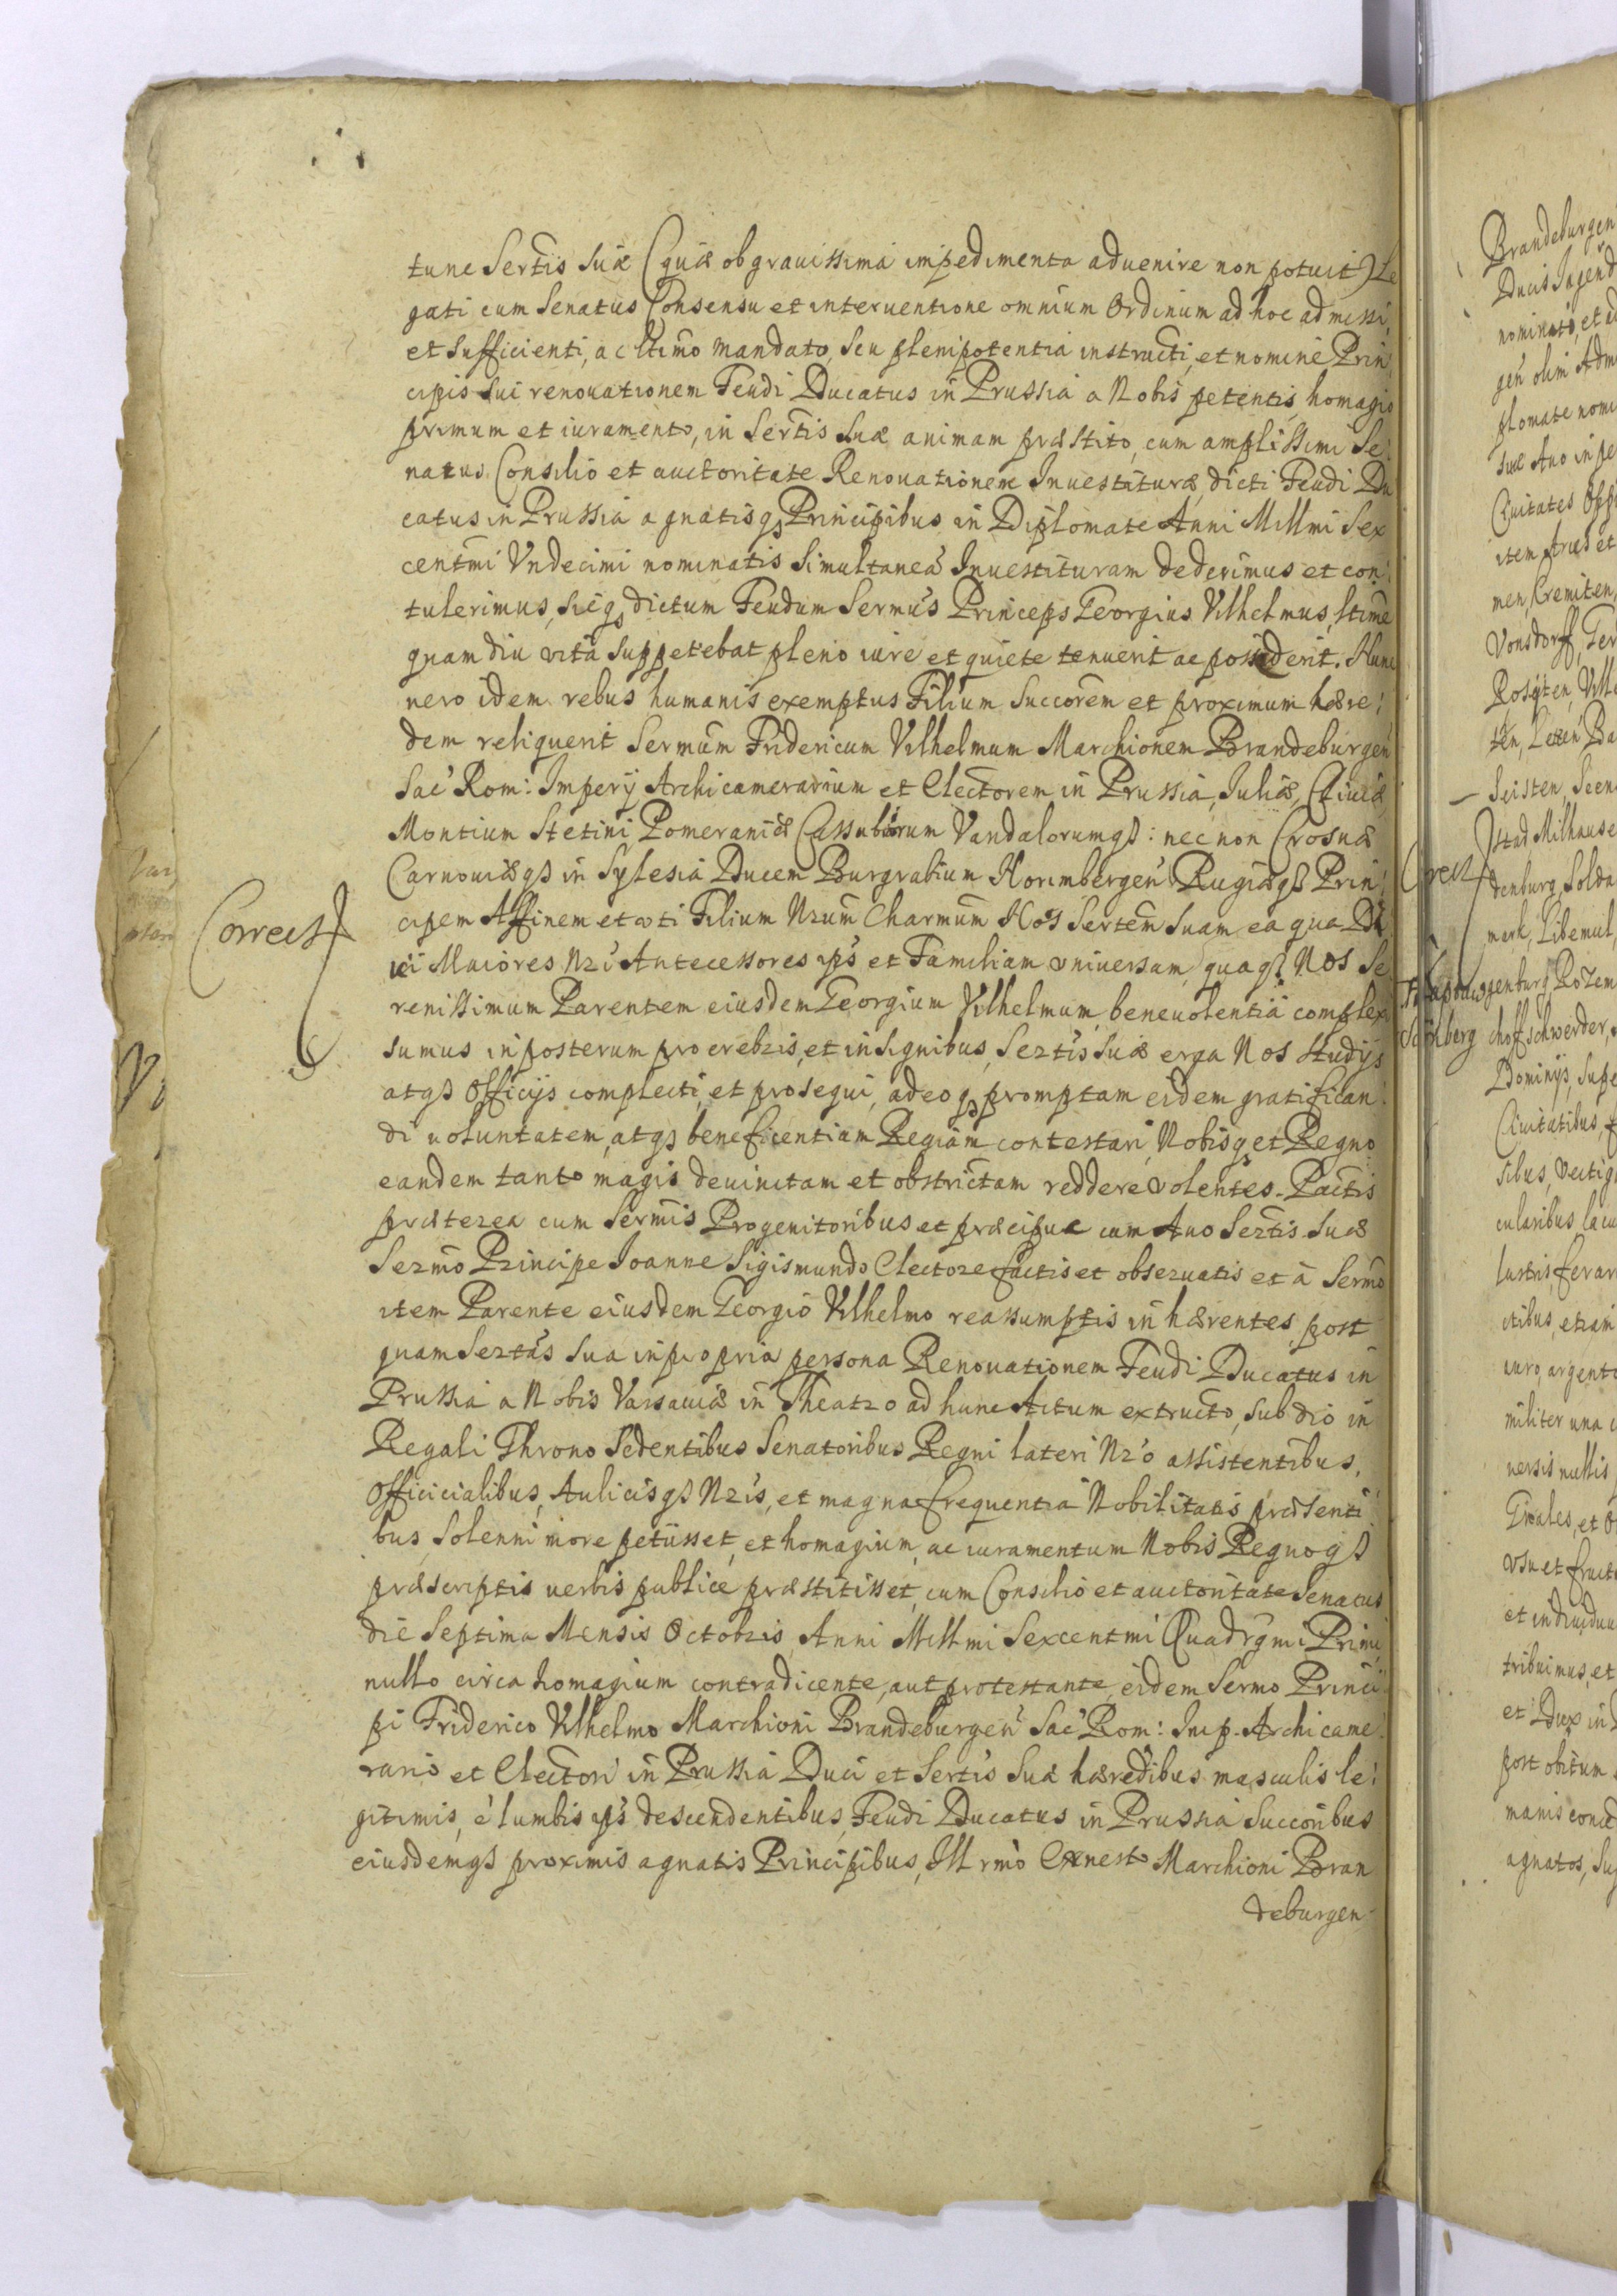 tunc Sertis Suæ (quæ ob grauissima impedimenta aduenire non potuit) Le
gati cum Senatus Consensu et interuentione omnium Ordinum ad hoc admissi,
et sufficienti, ac ltimo mandato, seu plenipotentia instructi, et nomine Prin
cipis sui renouationem Feudi Ducatus in Prussia a Nobis petentis, homagio
primum et iuramento, in Sertis Suæ animam præstito, cum amplissimi Se:
natus Consilio et auctoritate Renouationem Inuestituræ, dicti Feudi Du
catus in Prussia agnatisq Principibus in Diplomate Anni Millmi Sex
centmi Vndecimi nominatis Simultaneã Inuestituram dederimus et con:
tulerimus, sicq dictum Feudum Sermus Princeps Georgius Vilhelmus, ltime
quam diu vita suppetebat pleno iure et quiete tenuerit ac possederit. Hunc
uero idem rebus humanis exemptus Filium Succorem et proximum hære:
dem reliquerit Sermum Fridericum Vilhelmum Marchionem Brandeburgen
Sac Rom: Impery Archicamerarium et Electorem in Prussia, Iuliæ, Cliuiæ,
Montium Stetini Pomeraniæ Cassubiorum Vandalorumqß: nec non Crosnæ
Carnouiæqß in Sylesia Ducem Burgrabium Norimbergen Rugiæqß Prin:
cipem Affinem et vti Filium Nrum Charmum Nos Sertem Suam ea qua Di
ui Maiores Nri Antecessores ips et Familiam vniuersam, quaqß Nos Se
renissimum Parentem eiusdem Georgium Vilhelmum, beneuolentia complex
sumus inposterum pro crebris, et insignibus, Sertis Suæ erga Nos Studijs
atqß Officijs complecti, et prosequi, adeoq promptam eidem gratifican:
di uoluntatem, atqß beneficentiam Regiam contestari, Nobisq et Regno
eandem tanto magis deuinctam et obstrictam reddere volentes. Pactis
præterea cum Sermis Progenitoribus et præcipue cum Auo Sertis Suæ
Sermo Principe Ioanne Sigismundo Electore factis et obseruatis et à Sermo
item Parente eiusdem Georgio Vilhelmo reassumptis inhærentes, post
quam Sertas Sua in propria persona Renouationem Feudi Ducatus in
Prussia a Nobis Varsauiæ in Theatro ad hunc Actum extructo, sub dio in
Regali Throno Sedentibus Senatoribus Regni lateri Nro assistentibus,
Officicialibus, Aulicisqß Nris, et magna frequentia Nobilitatis præsenti
bus, solenni more petiisset, et homagium, ac iuramentum Nobis Regnoqß
præscriptis uerbis publice præstitisset, cum Consilio et auctoritate Senatus
die Septima Mensis Octobris Anni Millmi Sexcentmi Quadrgmi Primi,
nullo circa homagium contradicente, aut protestante, eidem Sermo Princi
pi Friderico Vilhelmo Marchioni Brandeburgen Sac Rom: Imp. Archicame
rario et Electori in Prussia Duci et Sertis Suæ hæredibus masculis le:
gitimis, è lumbis ips descendentibus, Feudi Ducatus in Prussia Succoribus
eiusdemqß proximis agnatis Principibus, Ill rmo Ernesto Marchioni Bran
deburgen
Correct
V.
Brandeburgen
Ducis Jagend
nominato, et
gen olim Adm
plomate nomi
suæ Auo in pe
Ciuitates Opp
item Arces et
men, Cremiten,
Vonsdorff, Ger
Rosyten, Vill
Seisten, Seen
Stad Milhause
Correct
denburg, Solda
mark, Libemul,
genburg Rozem
Schönberg
choffschwerder,
Dominijs, supe
Ciuitatibus, f
sibus, vectig
cularibus, lacu
lustris, ferar
ctibus, etiam
auro, argento
militer una c
uersis nullis
et O
vsu et fructu
et indiuiduu
tribuimus, et
et Dux in
post obitum
manis conced
agnatos, su